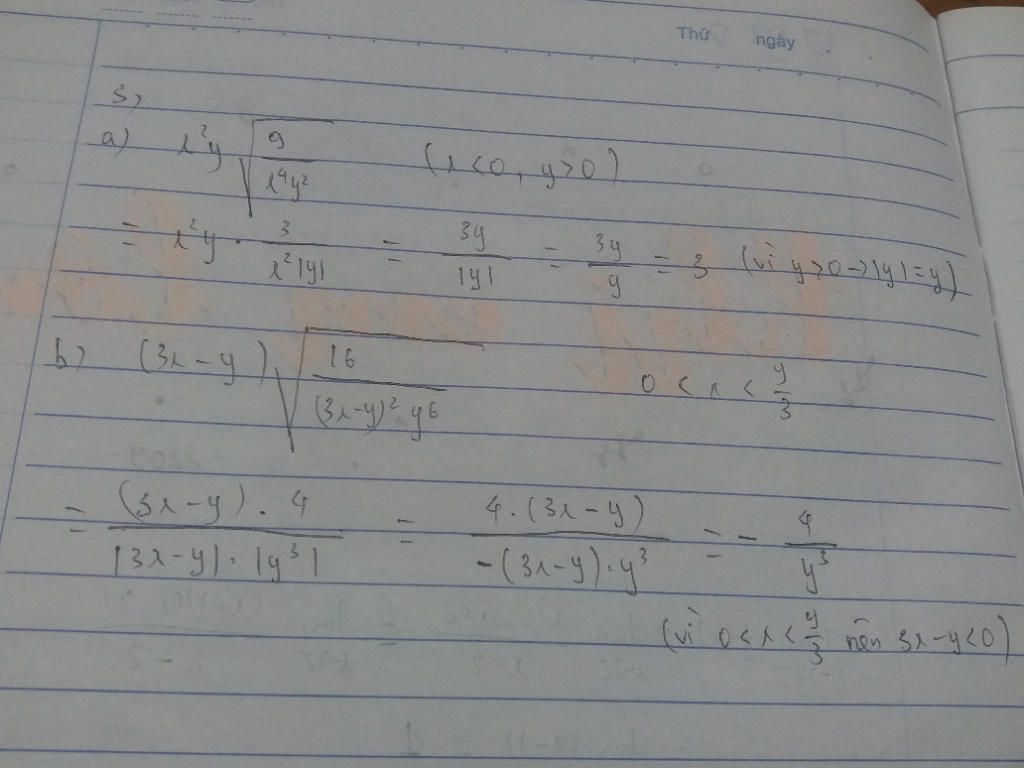 Thứ ngày
5,
a) x²y √(9/(x⁴y²)) (x<0, y>0)
= x²y · 3/(x²|y|) = 3y/|y| = 3y/y = 3 (vì y>0 → |y|=y)
b) (3x-y) √(16/((3x-y)² y6)) 0 < x < y/3
= (3x-y) . 4/(|3x-y| · |y³|) = 4 . (3x-y)/(-(3x-y) · y³) = - 4/y³
(vì 0 < x < y/3 nên 3x-y<0)